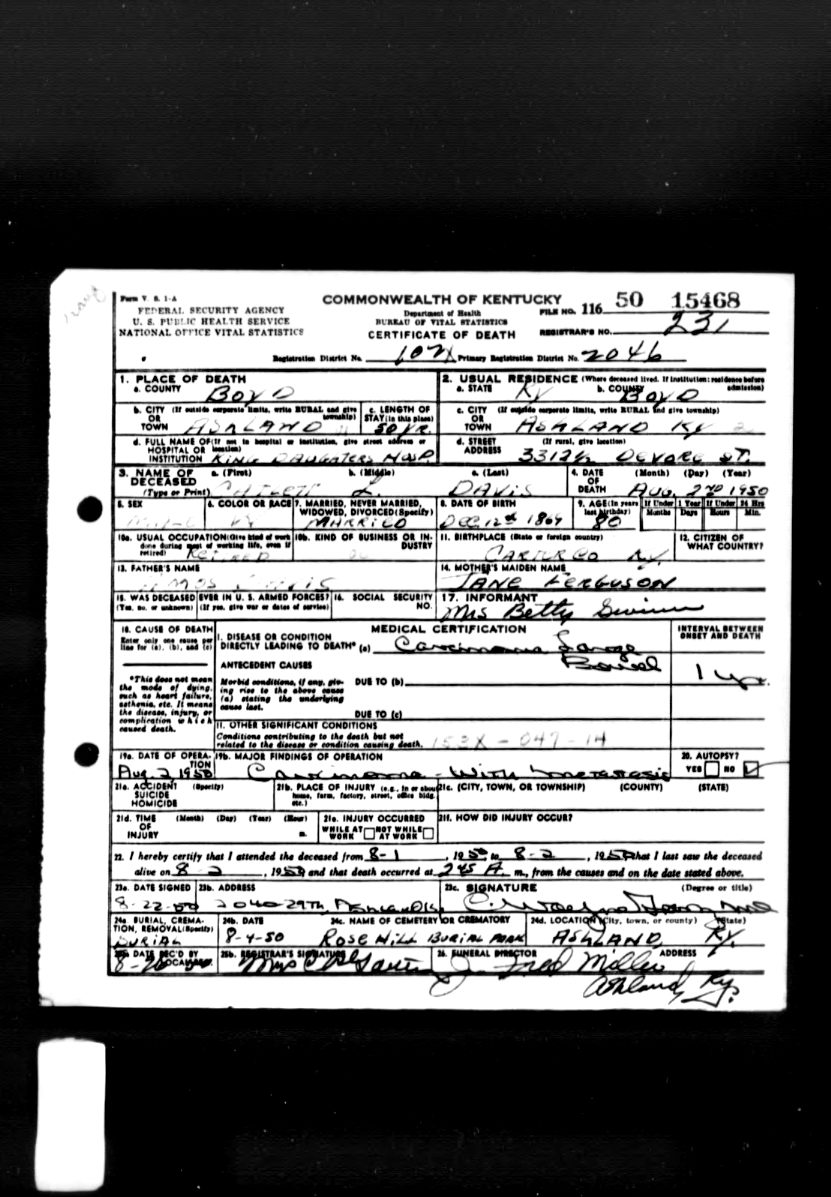 Form V. S. 1-A
FEDERAL SECURITY AGENCY
U. S. PUBLIC HEALTH SERVICE
NATIONAL OFFICE VITAL STATISTICS
COMMONWEALTH OF KENTUCKY
Department of Health
BUREAU OF VITAL STATISTICS
CERTIFICATE OF DEATH
FILE NO. 116 50 15468
REGISTRAR'S NO. 231
Registration District No. Primary Registration District No. 2046
1. PLACE OF DEATH
a. COUNTY BOYD
b. CITY (If outside corporate limits, write RURAL and give township)
OR TOWN ASHLAND
c. LENGTH OF STAY (in this place) 50 YR.
d. FULL NAME OF (If not in hospital or institution, give street address or location)
HOSPITAL OR INSTITUTION KING DAUGHTERS HOSP.
2. USUAL RESIDENCE (Where deceased lived. If institution: residence before admission)
a. STATE KY b. COUNTY BOYD
c. CITY (If outside corporate limits, write RURAL and give township)
OR TOWN ASHLAND KY
d. STREET ADDRESS (If rural, give location)
3312½ DEVORE ST.
3. NAME OF DECEASED (Type or Print)
a. (First) b. (Middle) c. (Last)
CATLETT L. DAVIS
4. DATE OF DEATH (Month) (Day) (Year)
AUG. 2ND 1950
5. SEX
6. COLOR OR RACE
7. MARRIED, NEVER MARRIED, WIDOWED, DIVORCED (Specify)
MARRIED
8. DATE OF BIRTH
DEC 12th 1869
9. AGE (In years last birthday) 80
If Under 1 Year Months Days
If Under 24 Hrs Hours Min.
10a. USUAL OCCUPATION (Give kind of work done during most of working life, even if retired)
RETIRED
10b. KIND OF BUSINESS OR INDUSTRY
11. BIRTHPLACE (State or foreign country)
CARTER CO KY.
12. CITIZEN OF WHAT COUNTRY?
13. FATHER'S NAME
AMOS DAVIS
14. MOTHER'S MAIDEN NAME
JANE FERGUSON
15. WAS DECEASED EVER IN U. S. ARMED FORCES?
(Yes, no, or unknown) (If yes, give war or dates of service)
16. SOCIAL SECURITY NO.
17. INFORMANT
Mrs Betty
18. CAUSE OF DEATH
Enter only one cause per line for (a), (b), and (c)
*This does not mean the mode of dying, such as heart failure, asthenia, etc. It means the disease, injury, or complication which caused death.
MEDICAL CERTIFICATION
I. DISEASE OR CONDITION
DIRECTLY LEADING TO DEATH* (a) Carcinoma Large Bowel
INTERVAL BETWEEN ONSET AND DEATH
1 yr.
ANTECEDENT CAUSES
Morbid conditions, if any, giving rise to the above cause (a) stating the underlying cause last.
DUE TO (b)
DUE TO (c)
II. OTHER SIGNIFICANT CONDITIONS
Conditions contributing to the death but not related to the disease or condition causing death.
153X - 047 - 14
19a. DATE OF OPERATION
Aug 2 1950
19b. MAJOR FINDINGS OF OPERATION
Carcinoma - with metastasis
20. AUTOPSY?
YES NO ✓
21a. ACCIDENT SUICIDE HOMICIDE (Specify)
21b. PLACE OF INJURY (e.g., in or about home, farm, factory, street, office bldg. etc.)
21c. (CITY, TOWN, OR TOWNSHIP) (COUNTY) (STATE)
21d. TIME OF INJURY (Month) (Day) (Year) (Hour) m.
21e. INJURY OCCURRED
WHILE AT WORK NOT WHILE AT WORK
21f. HOW DID INJURY OCCUR?
22. I hereby certify that I attended the deceased from 8-1, 1950 to 8-2, 1950 that I last saw the deceased
alive on 8-2, 1950 and that death occurred at 2:45 A. m., from the causes and on the date stated above.
23a. DATE SIGNED
8-22-50
23b. ADDRESS
2040-29th, Ashland Ky
23c. SIGNATURE (Degree or title)
24a. BURIAL, CREMATION, REMOVAL (Specify)
BURIAL
24b. DATE
8-4-50
24c. NAME OF CEMETERY OR CREMATORY
ROSE HILL BURIAL PARK
24d. LOCATION (City, town, or county) (State)
ASHLAND, KY.
25a. DATE REC'D BY LOCAL REG.
25b. REGISTRAR'S SIGNATURE
26. FUNERAL DIRECTOR ADDRESS
J. Fred Miller
Ashland, Ky.